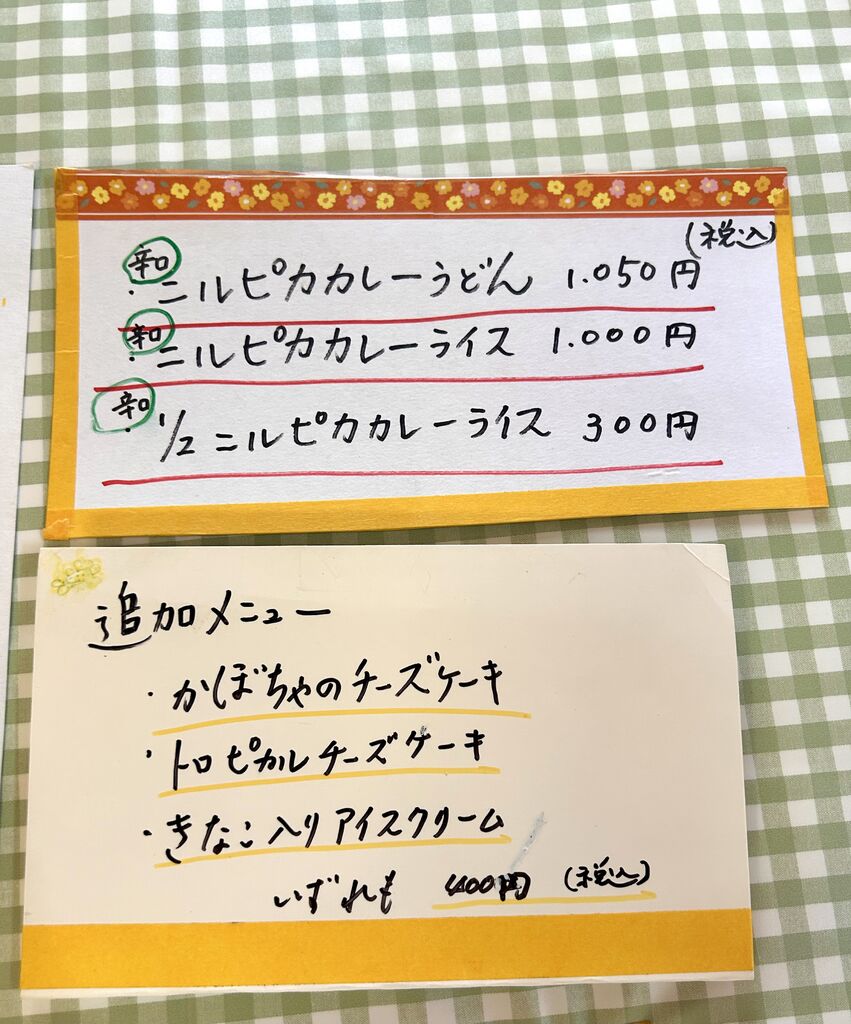 (税込)
辛口
・ニルピカカレーうどん 1.050円
辛口
・ニルピカカレーライス 1.000円
辛口
・1/2 ニルピカカレーライス 300円
追加メニュー
・かぼちゃのチーズケーキ
・トロピカルチーズケーキ
・きなこ入りアイスクリーム
いずれも 400円 (税込)